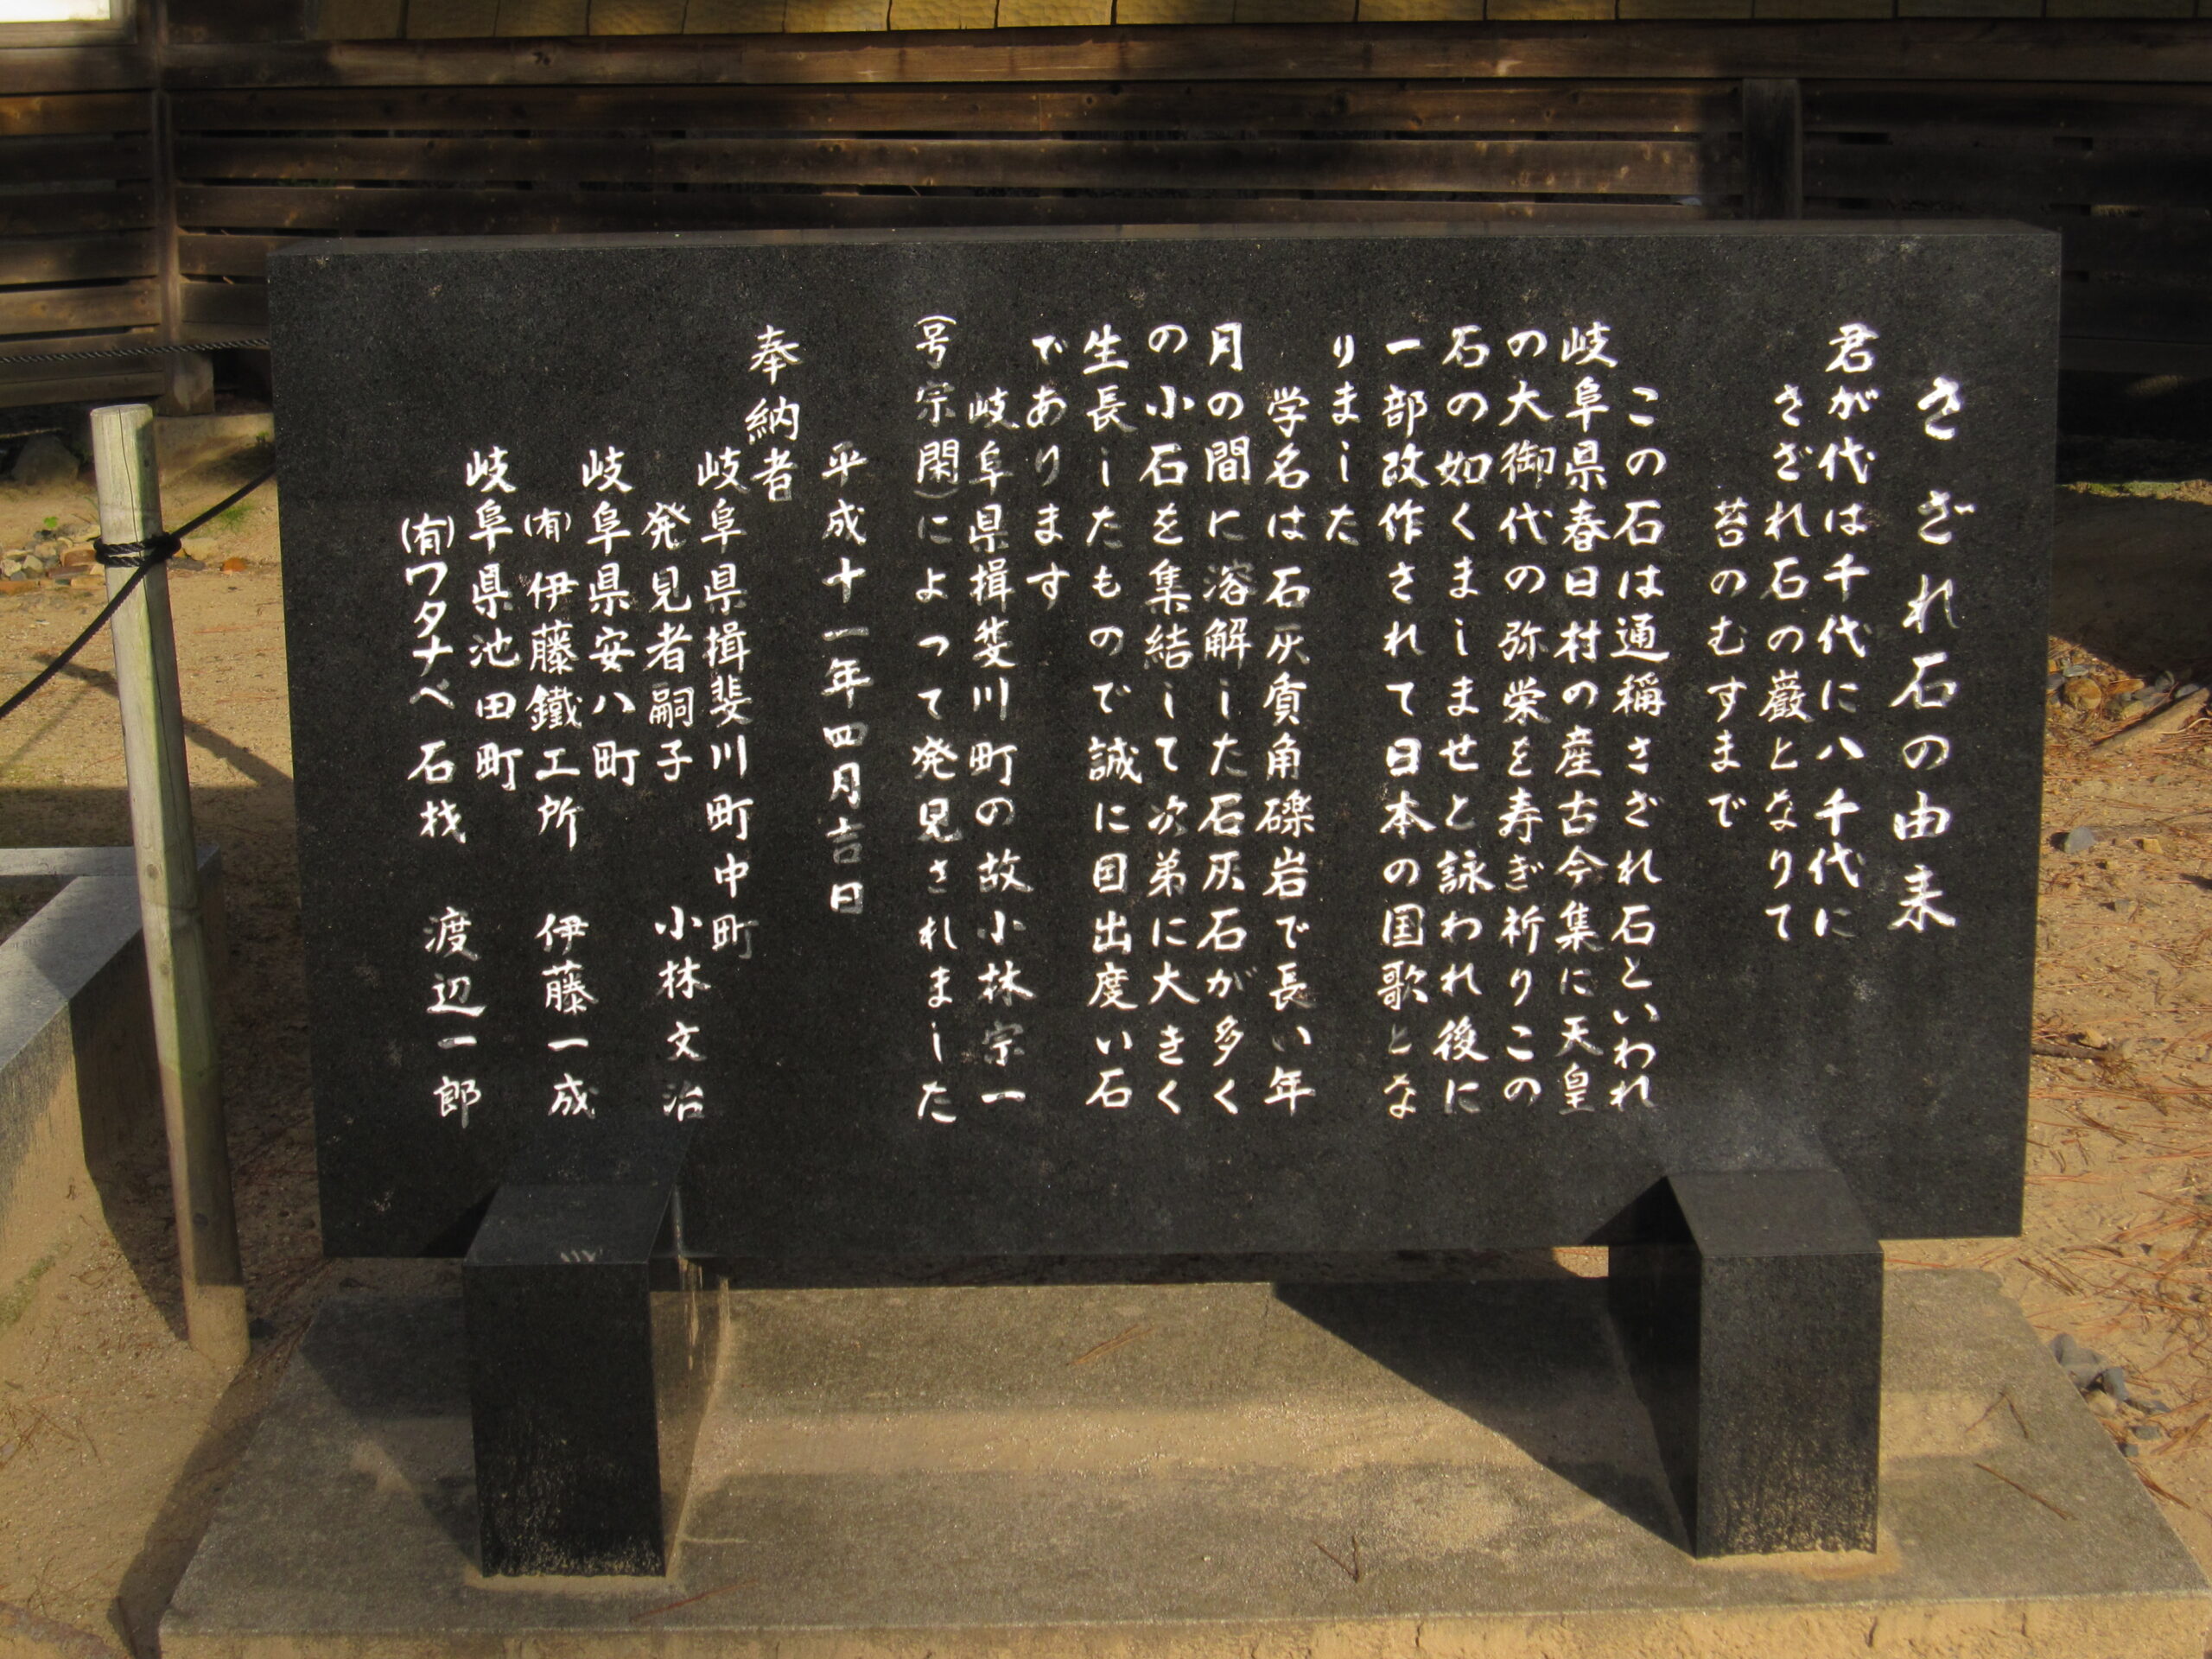 さざれ石の由来
君が代は千代に八千代に
さざれ石の巌となりて
苔のむすまで
この石は通稱さざれ石といわれ
岐阜県春日村の産古今集に天皇
の大御代の弥栄を寿ぎ祈りこの
石の如くましませと詠われ後に
一部改作されて日本の国歌とな
りました
学名は石灰質角礫岩で長い年
月の間に溶解した石灰石が多く
の小石を集結して次第に大きく
生長したもので誠に目出度い石
であります
岐阜県揖斐川町の故小林宗一
(号宗閑)によって発見されました
平成十一年四月吉日
奉納者
岐阜県揖斐川町中町
発見者嗣子 小林文治
岐阜県安八町
(有)伊藤鐵工所 伊藤一成
岐阜県池田町
(有)ワタナベ石材 渡辺一郎